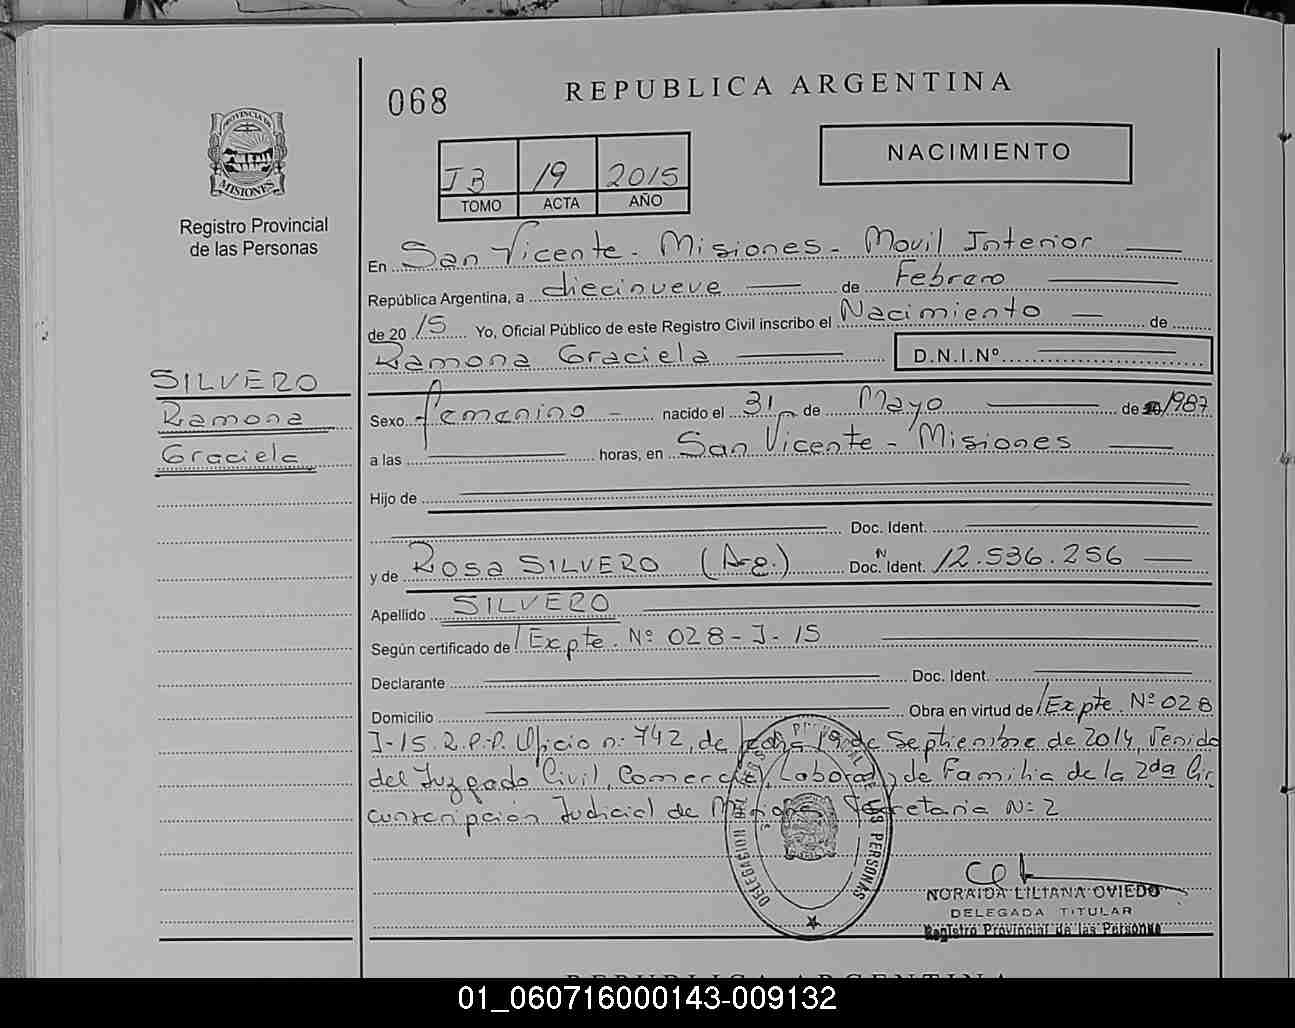 068
REPUBLICA ARGENTINA
PROVINCIA DE
MISIONES
Registro Provincial
de las Personas
NACIMIENTO
19 2015
TOMO ACTA AÑO
En San Vicente - Misiones - Movil Interior
República Argentina, a diecinueve de Febrero
de 2015 Yo, Oficial Público de este Registro Civil inscribo el Nacimiento de
Ramona Graciela D.N.I.Nº
SILVERO
Ramona
Graciela
Sexo femenino - nacido el 31 de Mayo de 1987
a las horas, en San Vicente - Misiones
Hijo de
Doc. Ident.
y de Rosa SILVERO (Arg.) Doc. N Ident. 12.536.256
Apellido SILVERO
Según certificado de Expte. Nº 028-J-15
Declarante Doc. Ident.
Domicilio Obra en virtud de Expte. Nº 028
J-15. R.P.P. Oficio nº 742, de fecha 19 de Septiembre de 2014, Venido
del Juzgado Civil, Comercial, Laboral y de Familia de la 2da Cir
cunscripción Judicial de Misiones Secretaria Nº 2
DELEGACION
PROVINCIAL DE LAS PERSONAS
NORAIDA LILIANA OVIEDO
DELEGADA TITULAR
Registro Provincial de las Personas
REPUBLICA ARGENTINA
01_060716000143-009132